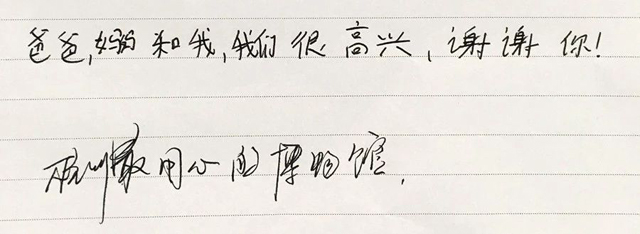 爸爸,妈妈和我,我们很高兴,谢谢你!
杭州最用心的博物馆.